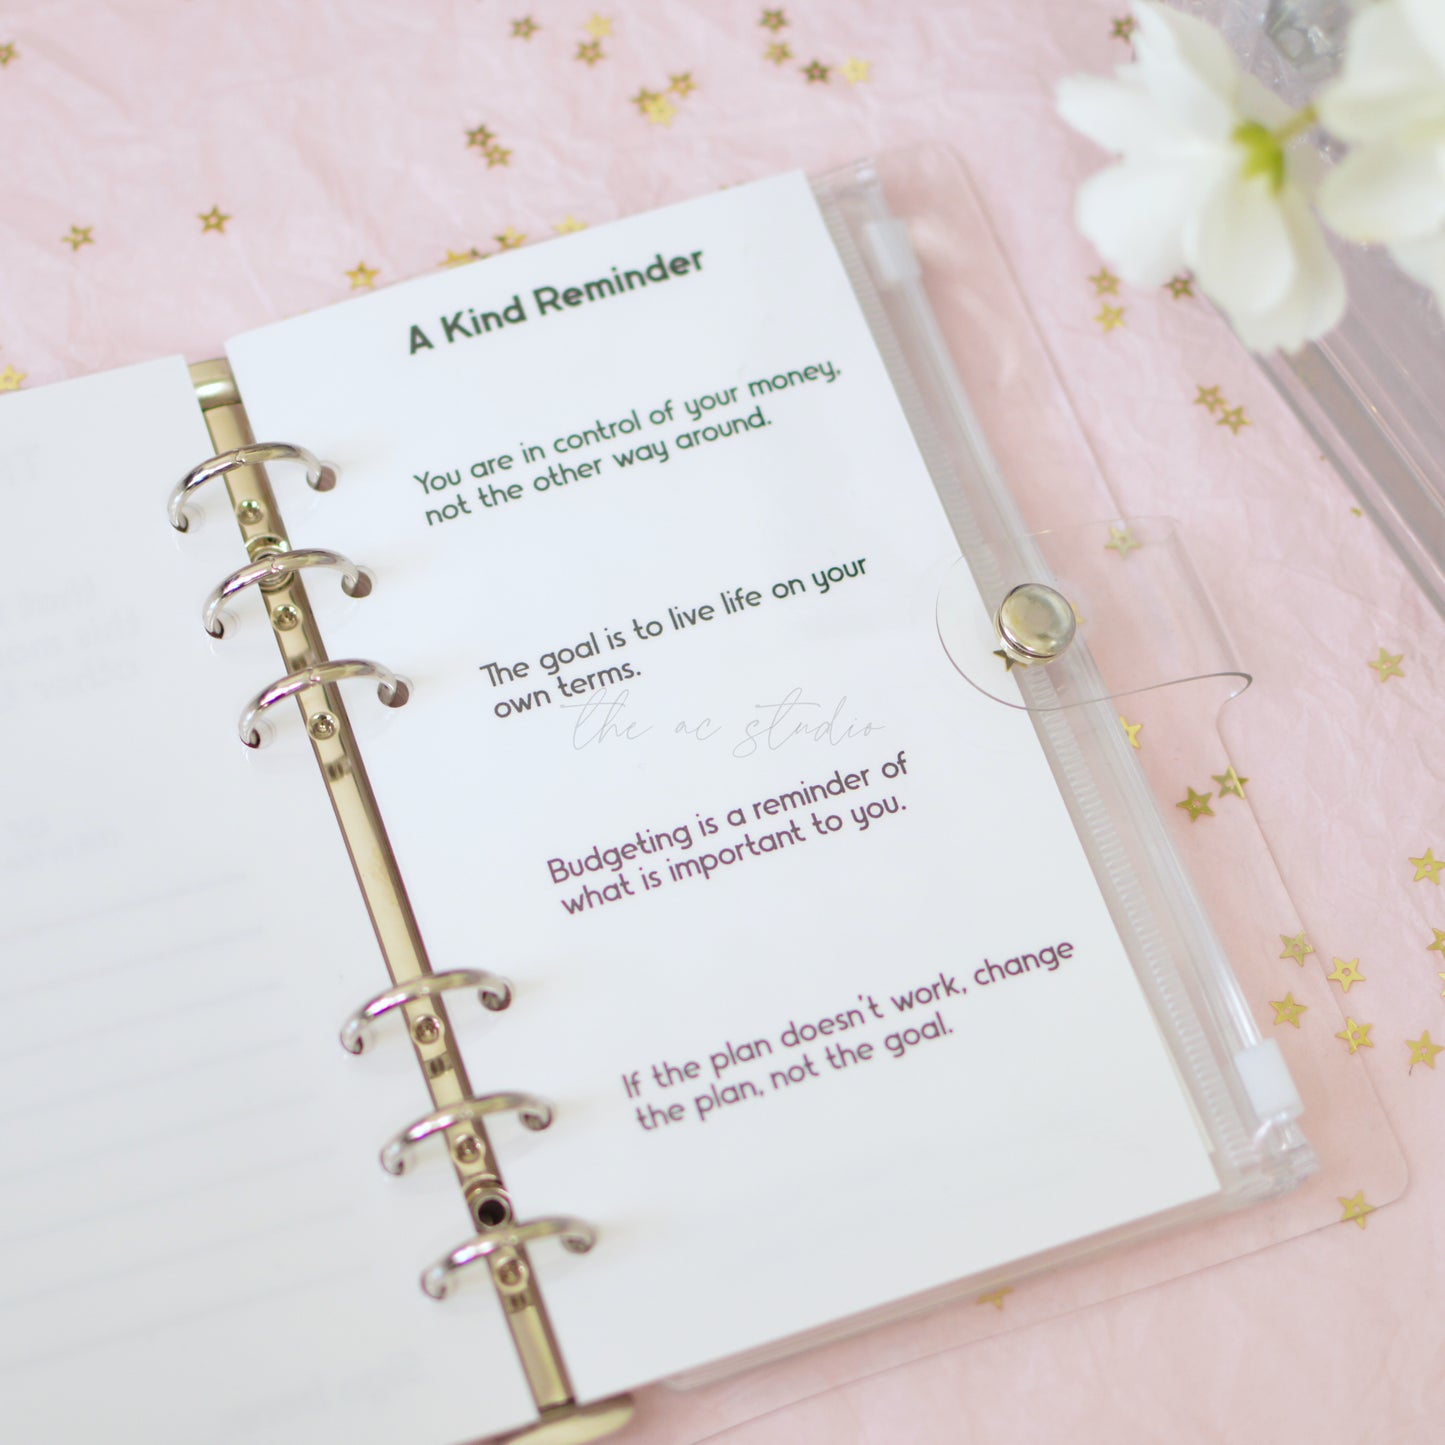 A Kind Reminder
You are in control of your money,
not the other way around.
The goal is to live life on your
own terms.
the ac studio
Budgeting is a reminder of
what is important to you.
If the plan doesn't work, change
the plan, not the goal.